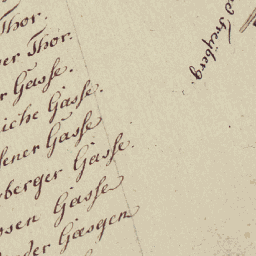 Thor.
er Thor.
r Gasse.
iche Gasse.
sener Gasse
berger Gasse.
osen Gasse
der Gæsgen
Freyberg.